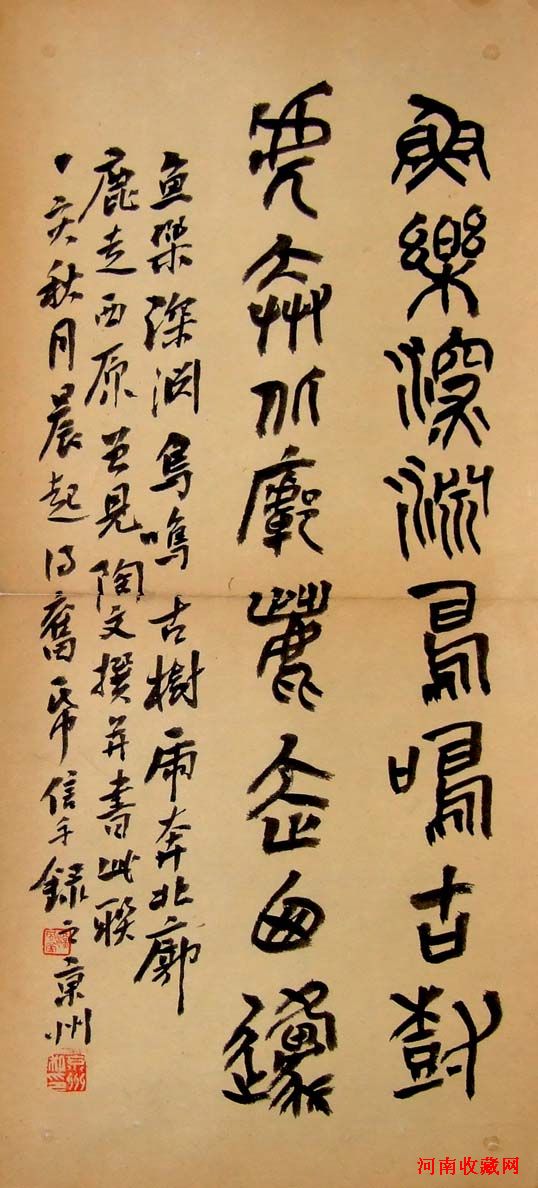 魚樂深淵鳥鳴古樹
虎奔北廓鹿走西邍
魚樂深淵鳥鳴古樹虎奔北廓
鹿走西原見陶文撰并書此聯
丁亥秋月晨起得舊帋信手錄之京州
河南收藏网